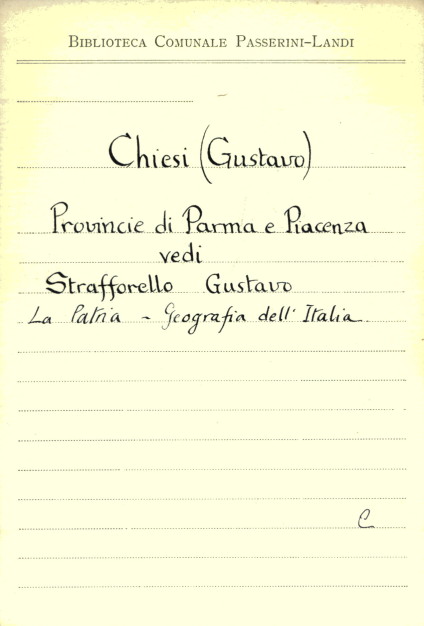 Biblioteca Comunale Passerini-Landi
Chiesi (Gustavo)
Provincie di Parma e Piacenza
vedi
Strafforello Gustavo
La Patria - Geografia dell' Italia.
C